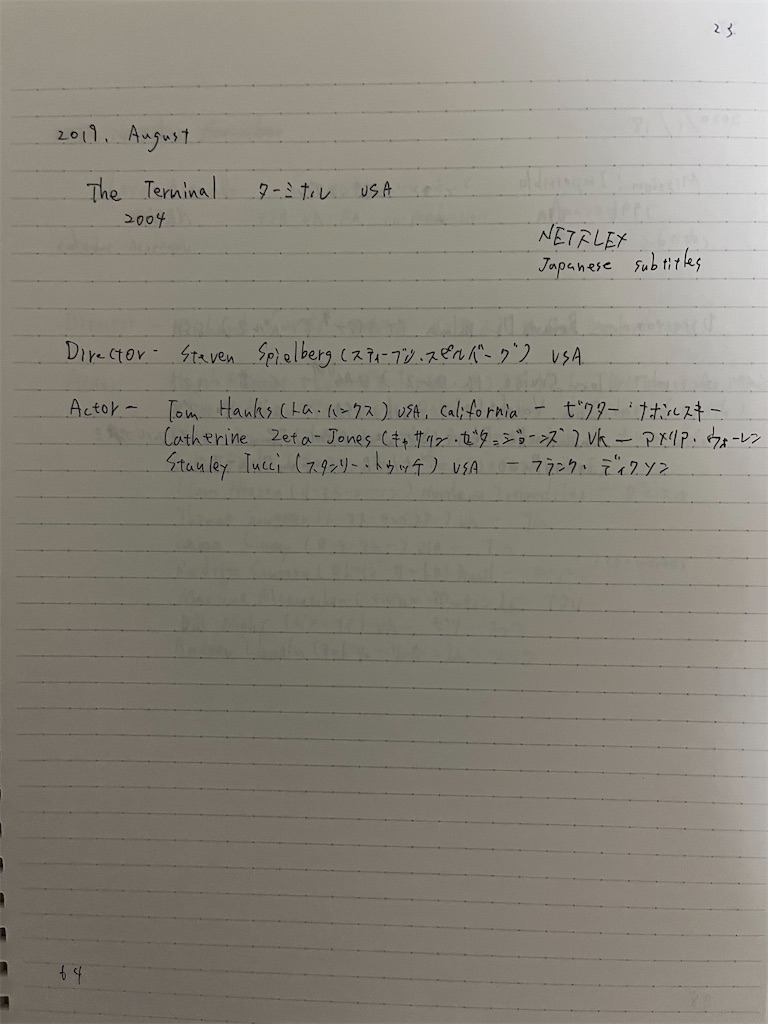 23
2019. August
The Terminal ターミナル USA
2004
NETFLEX
Japanese subtitles
Director - Steven Spielberg (スティーブン・スピルバーグ) USA
Actor - Tom Hanks (トム・ハンクス) USA, California - ビクター・ナボルスキー
Catherine Zeta-Jones (キャサリン・ゼタ=ジョーンズ) UK - アメリア・ウォーレン
Stanley Tucci (スタンリー・トゥッチ) USA - フランク・ディクソン
64